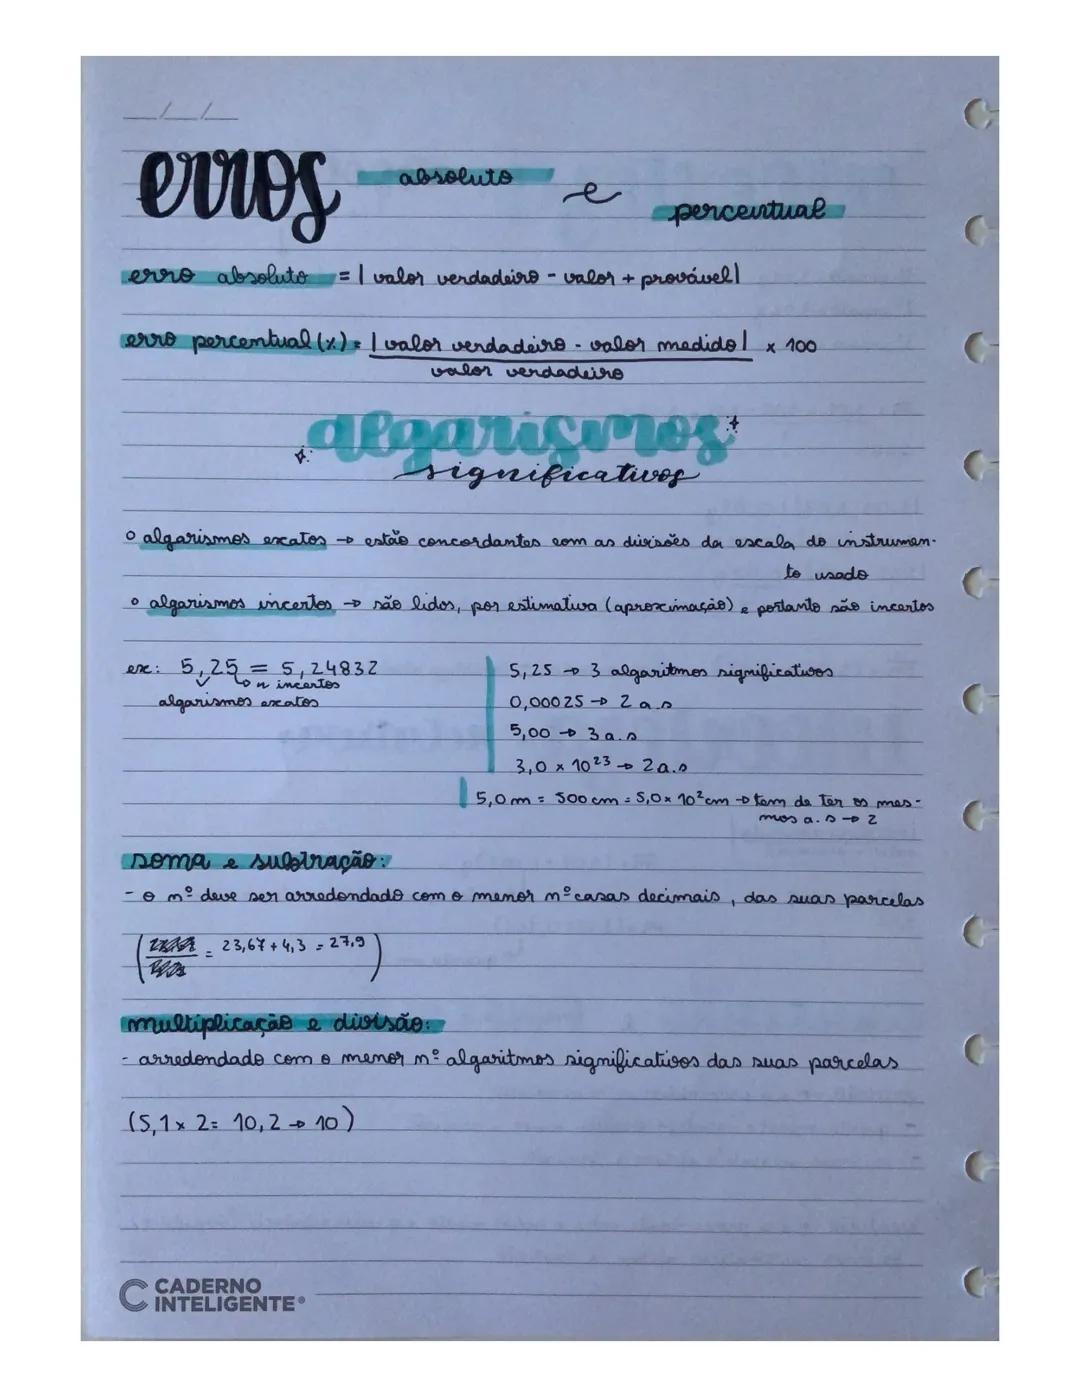 __/__/__
erros absoluto e percentual
erro absoluto = | valor verdadeiro - valor + provável |
erro percentual (%) = | valor verdadeiro - valor medido | x 100
valor verdadeiro
algarismos
significativos
o algarismos exatos → estão concordantes com as divisões da escala do instrumen-
to usado
o algarismos incertos → são lidos, por estimativa (aproximação) e portanto são incertos
ex: 5,25 = 5,24832
↳ n incertos
algarismos exatos
5,25 → 3 algaritmos significativos
0,00025 → 2 a.s
5,00 → 3 a.s
3,0 x 10²³ → 2 a.s
5,0 m = 500 cm = 5,0 x 10² cm → tem de ter os mes-
mos a.s → 2
soma e subtração:
- o nº deve ser arredondado com o menor nº casas decimais, das suas parcelas
( = 23,67 + 4,3 = 27,9 )
multiplicação e divisão:
- arredondado com o menor nº algaritmos significativos das suas parcelas
(5,1 x 2 = 10,2 → 10)
CADERNO
INTELIGENTE®